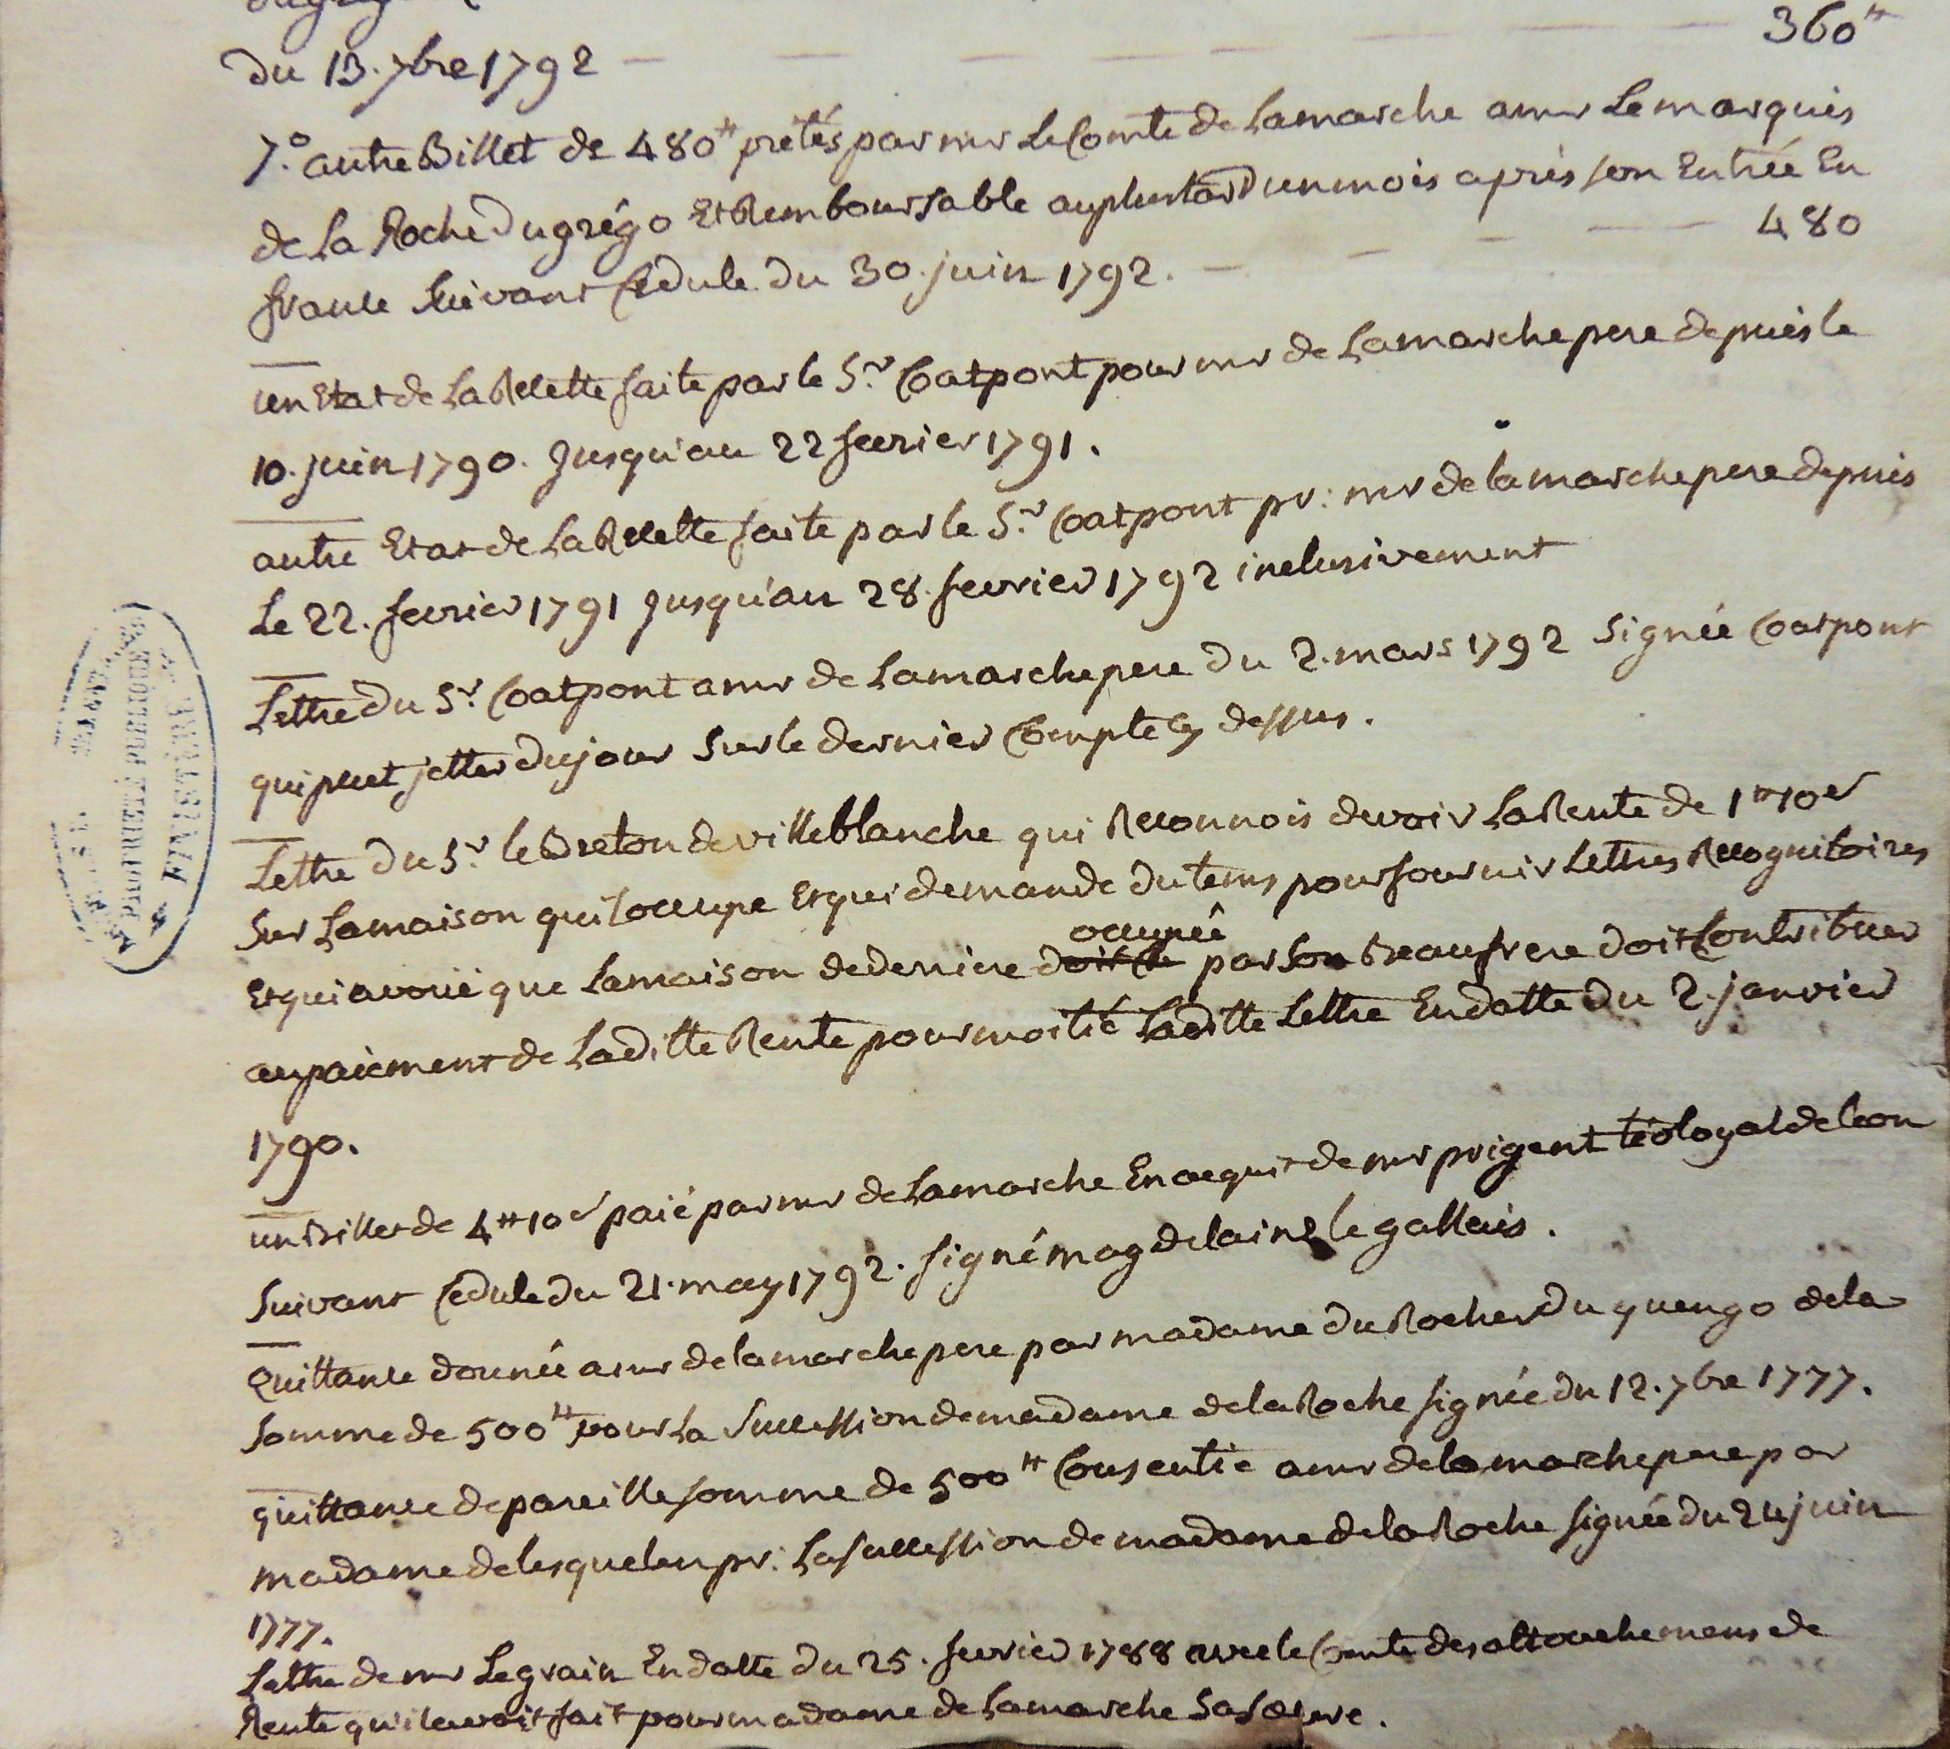 du 13. 7bre 1792 360#
7.º autre Billet de 480# prétés par mr Le Comte de Lamarche a mr Le marquis
de La Roche Dugrégo Et Remboursable au plustard un mois aprés son Entrée En
france suivant Cedule du 30. juin 1792. 480
un Etat de La Recette faite par le Sr. Coatpont pour mr de Lamarche pere depuis le
10. juin 1790. Jusqu'au 22 fevrier 1791.
autre Etat de La Recette faite par le Sr. Coatpont pr: mr de lamarche pere depuis
Le 22. fevrier 1791 Jusqu'au 28. fevrier 1792 inclusivement
Lettre du Sr. Coatpont a mr de Lamarche pere du 2. mars 1792 signée Coatpont
qui peut jetter du jour sur le dernier Compte cy dessus.
Lettre du Sr. le Breton de villeblanche qui Reconnois devoir La Rente de 1# 10s
sur La maison qu'il occupe Et qui demande du tems pour fournir Lettres Recognitoires
Et qui avoué que La maison de derriere occupée par son Beaufrere doit Contribuer
au paiement de La ditte Rente pour moitié La ditte Lettre En datte du 2. janvier
1790.
un Billet de 4# 10s paié par mr de Lamarche En acquit de mr prigent téologal de leon
suivant Cedule du 21. may 1792. signé magdelaine le gallais.
Quittance donnée a mr de lamarche pere par madame du Rocher du quengo de la
somme de 500# pour La succession de madame de la Roche signée du 12. 7bre 1777.
quittance de pareille somme de 500# Consentie a mr de lamarche pere par
madame de lesquelen pr: La succession de madame de la Roche signée du 24 juin
1777.
Lettre de mr Legrain En datte du 25. fevrier 1788 avec le Compte des attouchemens de
Rente qu'il avoit fait pour madame de Lamarche sa soeur.
PROPRIETE PUBLIQUE
FINISTÈRE